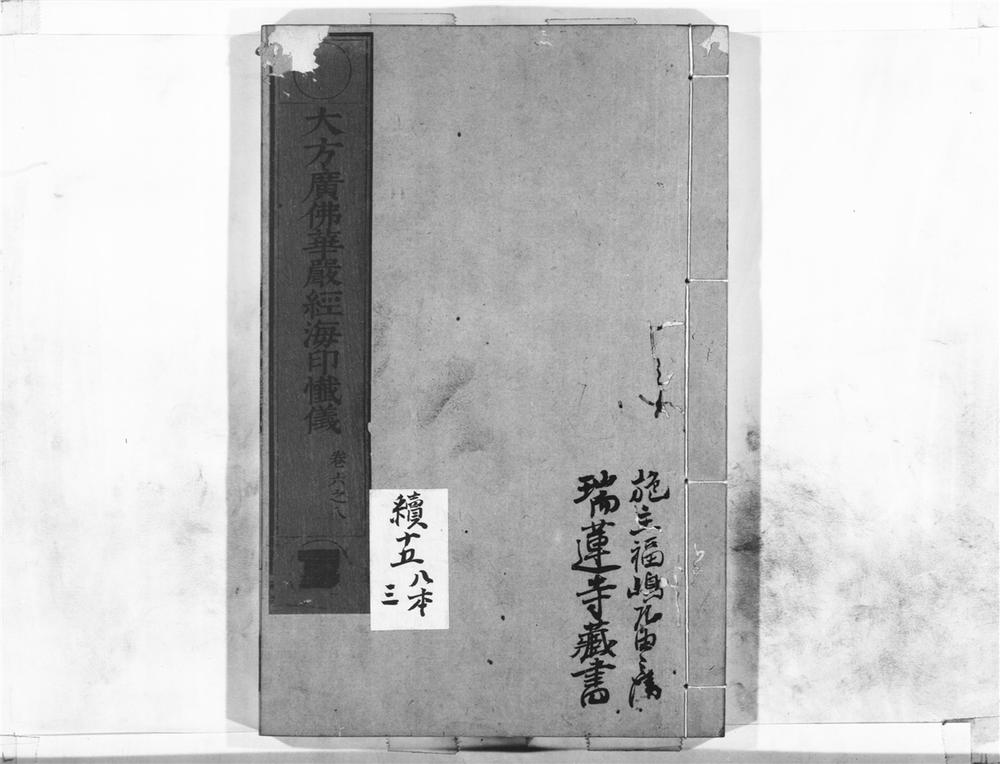 施主福嶋
瑞蓮寺藏書
大方廣佛華嚴經海印懺儀
卷六之八
續十五
八本
三